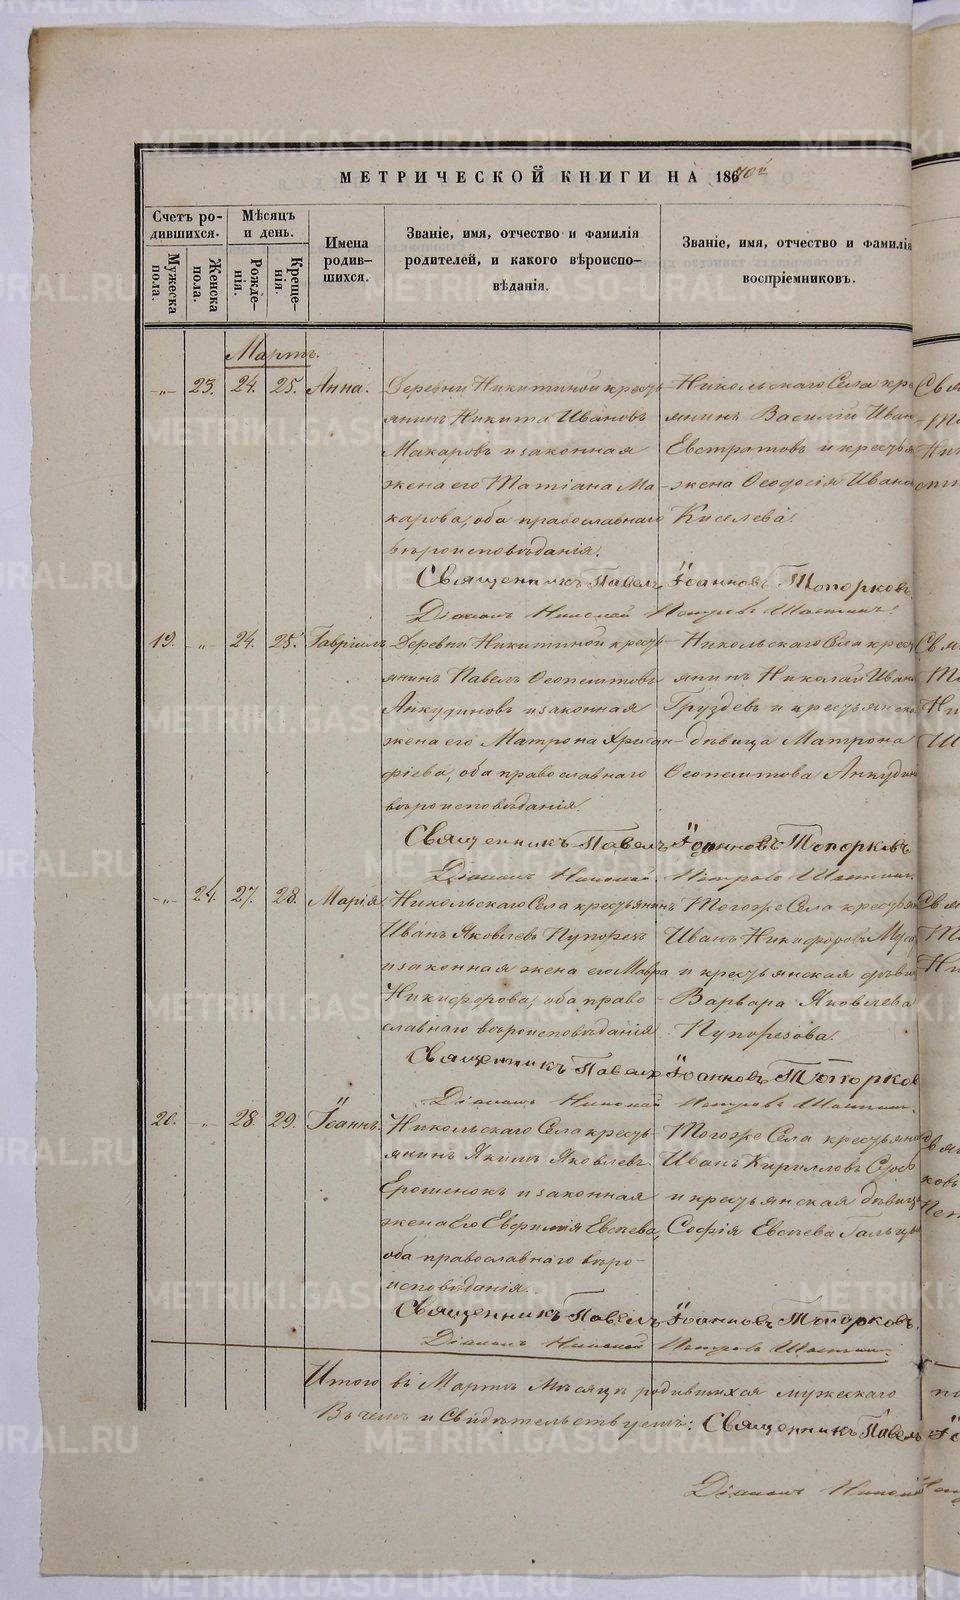 МЕТРИЧЕСКОЙ КНИГИ НА 1870й
Счетъ ро-
дившихся.
Мужеска
пола.
Женска
пола.
Мѣсяцъ
и день.
Рожде-
нія.
Креще-
нія.
Имена
родив-
шихся.
Званіе, имя, отчество и фамилія
родителей, и какого вѣроиспо-
вѣданія.
Званіе, имя, отчество и фамилія
воспріемниковъ.
Мартъ.
-"- 23. 24. 25. Анна.
Деревни Никитиной кресть-
янинъ Никита Ивановъ
Макаровъ и законная
жена его Татіана Ма-
карова, оба православнаго
вѣроисповѣданія.
Никольскаго Села кре
янинъ Василій Иван
Евстратовъ и крестья
жена Ѳеодосія Ивано
Киселева.
Священникъ Павелъ Іоанновъ Топорковъ.
Діаконъ Николай Петровъ
19. -"- 24. 25. Гавріилъ
Деревни Никитиной кресть-
янинъ Павелъ Ѳеопемтовъ
Анкудиновъ и законная
жена его Матрона Хрисан-
фіева, оба православнаго
вѣроисповѣданія.
Никольскаго Села крест
янинъ Николай Ивано
Груздевъ и крестьянска
дѣвица Матрона
Ѳеопемтова Анкудин
Священникъ Павелъ Іоанновъ Топорковъ
Діаконъ Николай Петровъ
-"- 24. 27. 28. Марія
Никольскаго Села крестьянинъ
Иванъ Яковлевъ Пупорезъ
и законная жена его Мавра
Никифорова, оба право-
славнаго вѣроисповѣданія
Тогоже Села крестьян
Иванъ Никифоровъ
и крестьянская дѣви
Варвара Яковлева
Пупорезова.
Священникъ Павелъ Іоанновъ Топорков
Діаконъ Николай Петровъ
20. -"- 28. 29. Іоаннъ.
Никольскаго Села кресть-
янинъ Якимъ Яковлевъ
Ерошенокъ и законная
жена Его Евфимія Евсѣева,
оба православнаго вѣро-
исповѣданія.
Тогоже Села крестьянин
Иванъ Кирилловъ
и крестьянская дѣвица
Софія Евсѣева
Священникъ Павелъ Іоанновъ Топорковъ.
Діаконъ Николай Петровъ
Итого въ Мартѣ Мѣсяцѣ родившихся мужескаго
Въ чемъ и Свидѣтельствуемъ: Священникъ Павелъ
Діаконъ Николай
METRIKI.GASO-URAL.RU